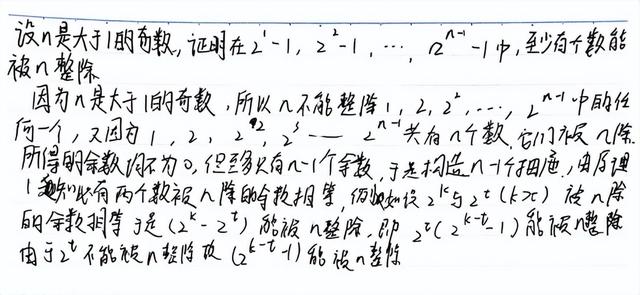 设n是大于1的奇数,证明在2¹-1, 2²-1, …, 2ⁿ⁻¹-1中,至少有个数能
被n整除
因为n是大于1的奇数,所以n不能整除1, 2, 2², …, 2ⁿ⁻¹中的任
何一个,又因为1, 2, 2², 2³ … 2ⁿ⁻¹共有n个数,它们被n除
所得的余数均不为0,但至多只有n-1个余数,于是构造n-1个抽屉,由原理
1知必有两个数被n除的余数相等,例如设2ᵏ与2ᵗ(k>t)被n除
的余数相等于是(2ᵏ-2ᵗ)能被n整除,即2ᵗ(2ᵏ⁻ᵗ-1)能被n整除
由于2ᵗ不能被n整除故(2ᵏ⁻ᵗ-1)能被n整除